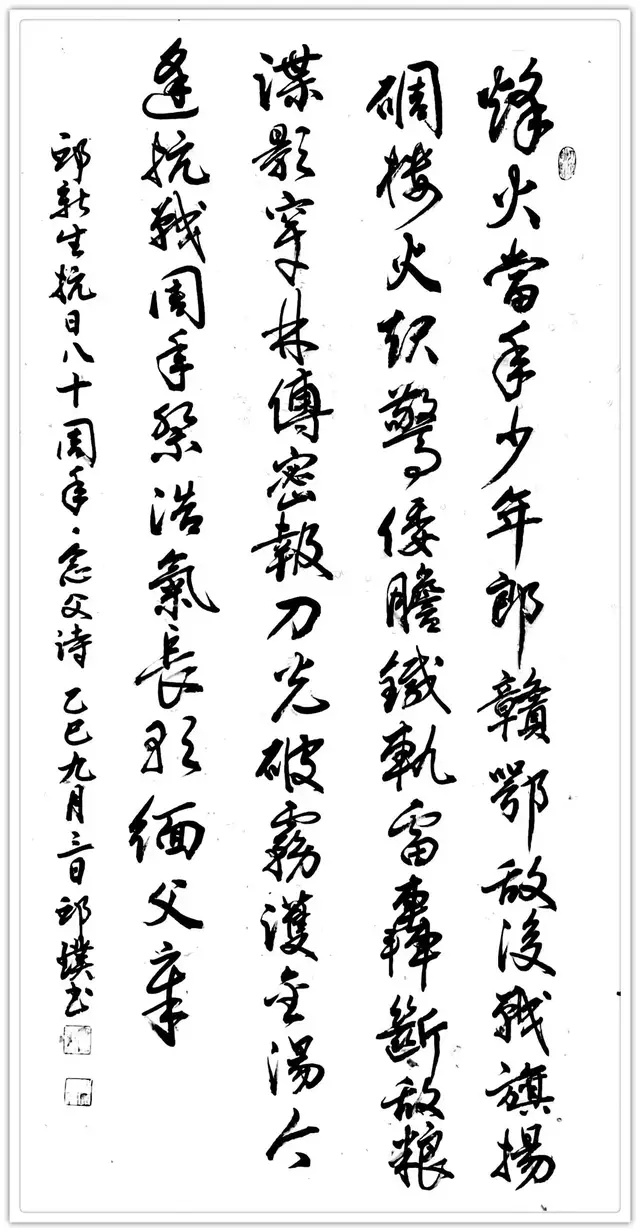 烽火當年少年郎贛鄂敌後戰旗揚
碉楼火起驚倭膽鐵軌雷轟斷敌粮
諜影穿林傳密報刀光破霧護金湯今
逢抗戰周年祭浩氣長歌緬父章
邱新生抗日八十周年、念父诗 乙巳九月三日邱璞书